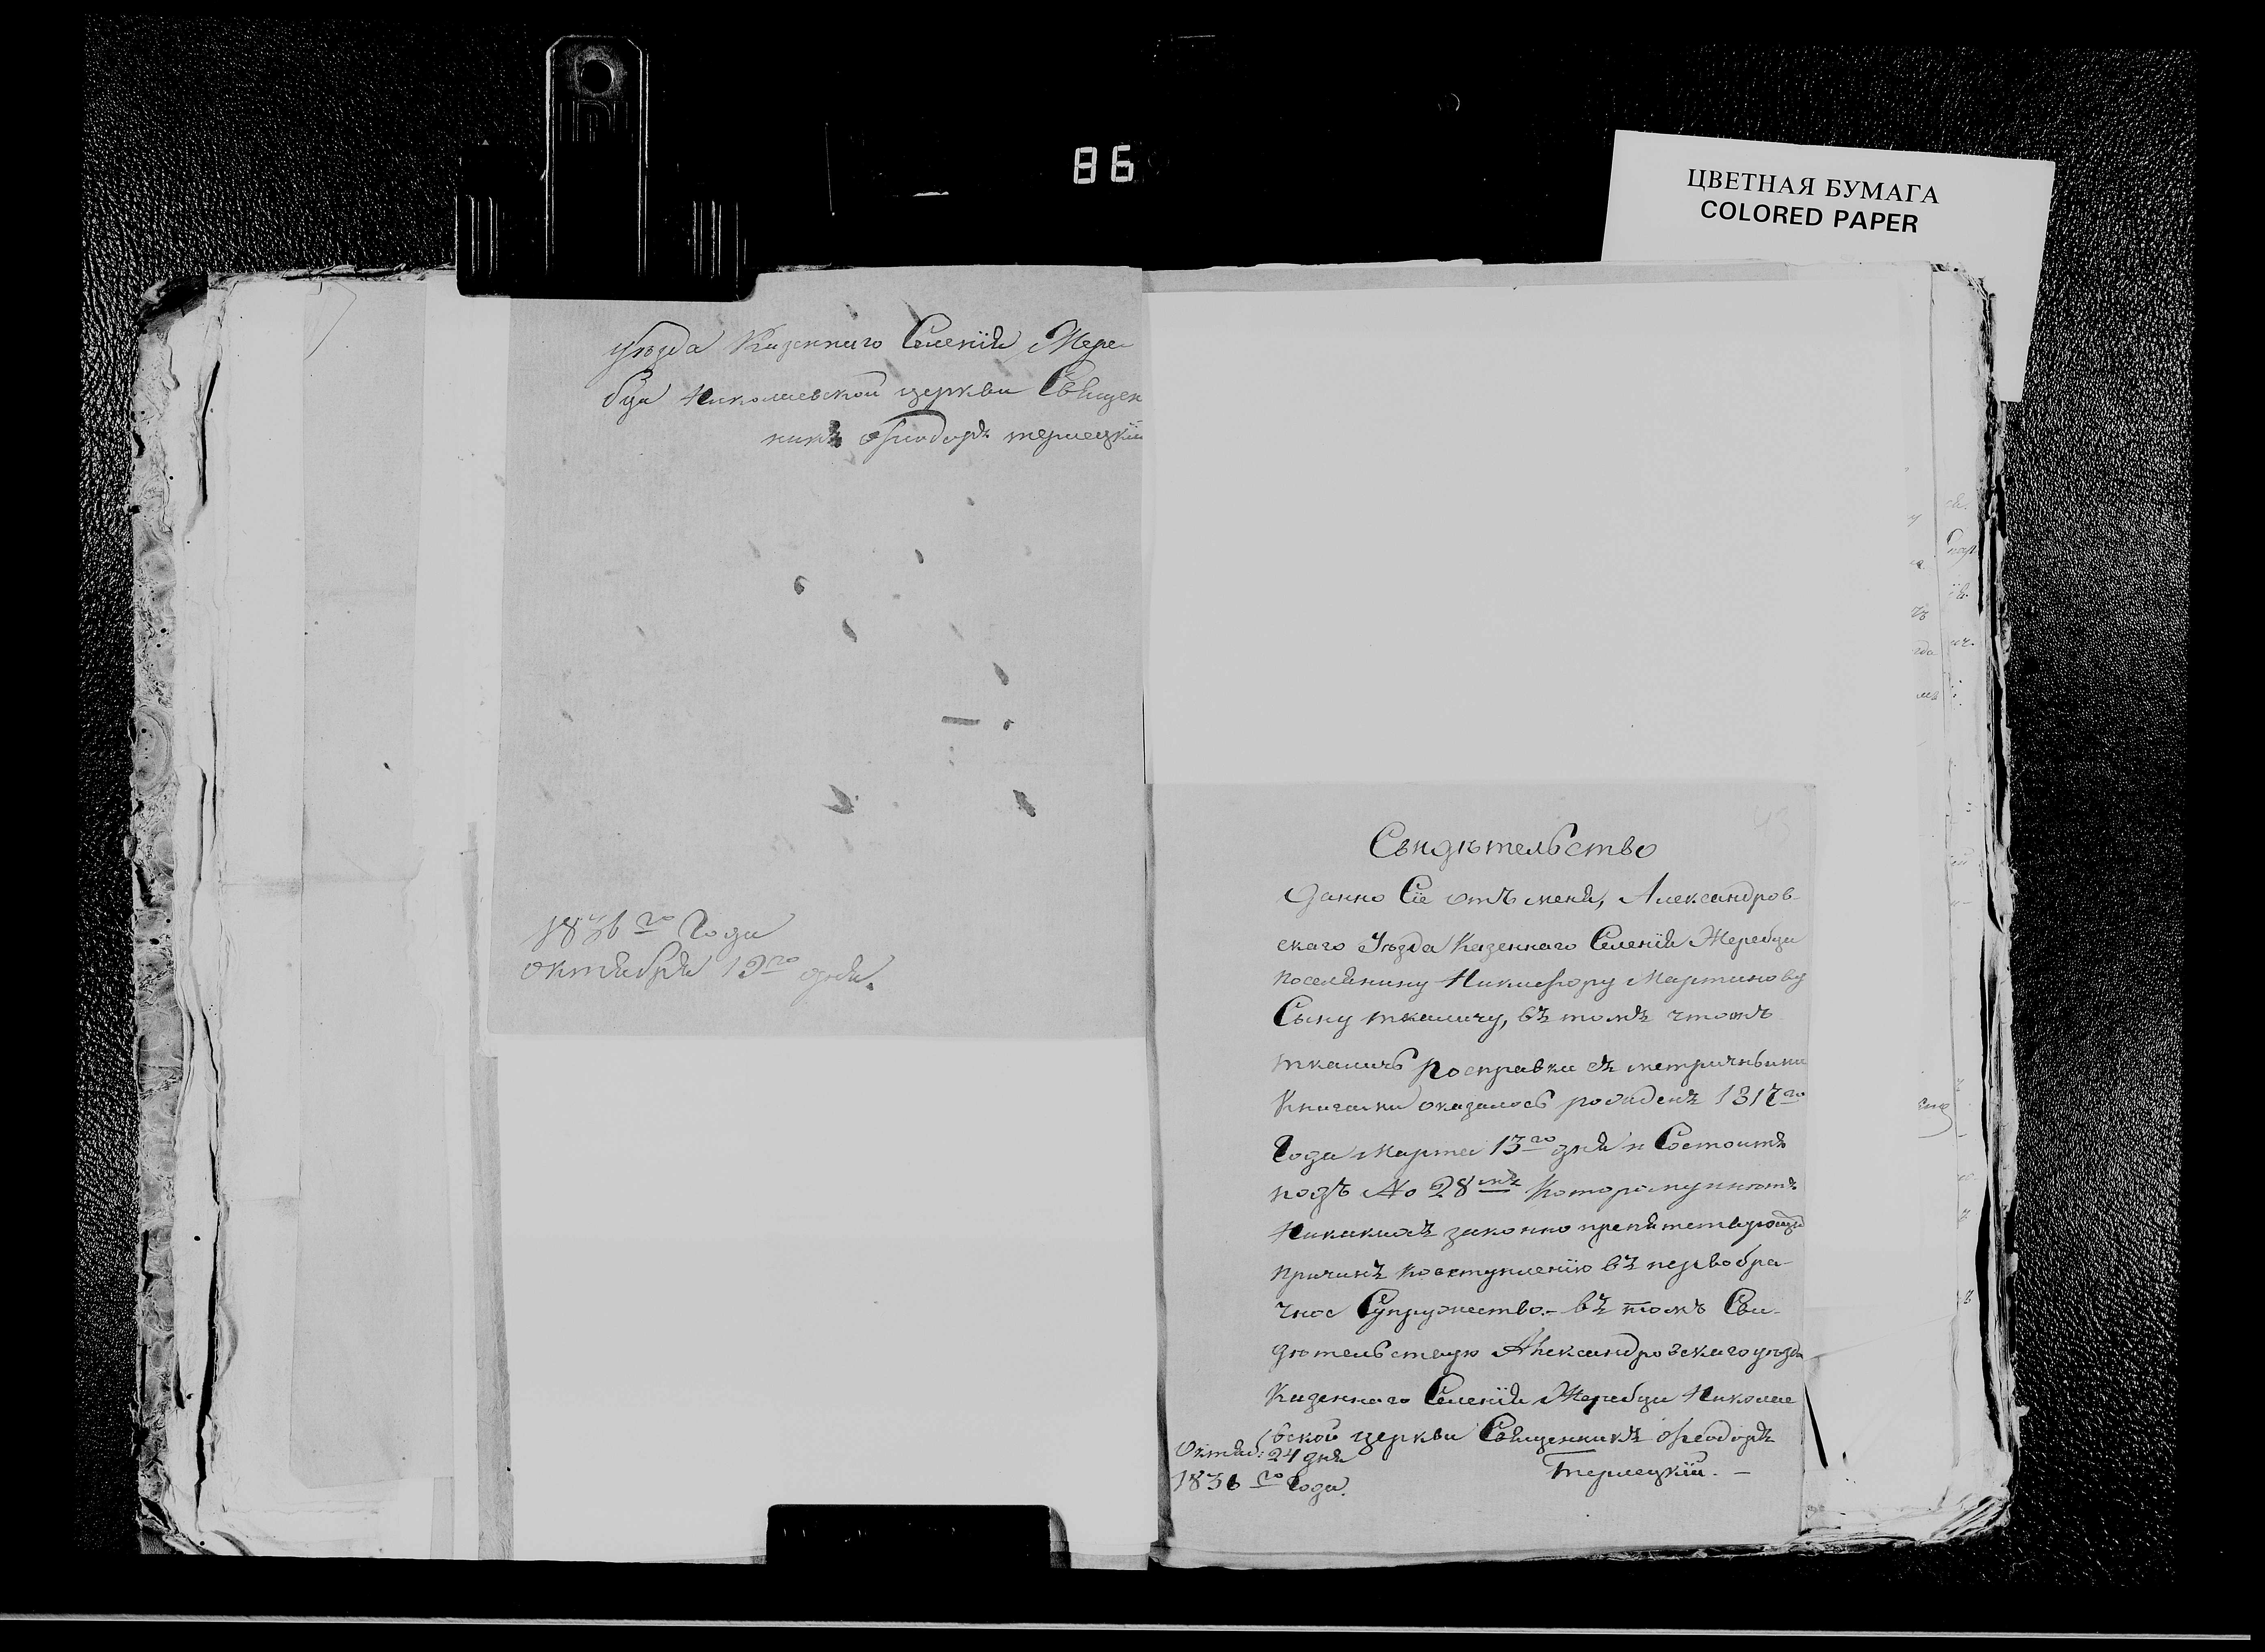 86
ЦВЕТНАЯ БУМАГА
COLORED PAPER
уѣзда Казеннаго Селенія Жере-
бца Николаевской церкви Священ
никъ Ѳеодоръ терлецкій
1836 го Года
октября 19го дня.
43
Свидѣтельство
Данно Сіе отъ меня, Александров-
скаго Уѣзда Казеннаго Селенія Жеребца
поселянину Никифору Мартинову
Сыну ткаличу, въ томъ что онъ
ткаличь по справки съ метричными
Книгами оказалось рожденъ 1817го
Года Марта 13го дня и Состоитъ
подъ No 28мъ Которому нѣтъ
Никакихъ законно препятствующи
причинъ ко вступленію въ первобра-
чное Супружество.- въ томъ Сви-
дѣтельствую Александровскаго уѣзда
Казеннаго Селенія Жеребца Николае
вской церкви Священникъ Ѳеодоръ
Терлецкій. -
Октяб: 24 дня
1836 го Года.